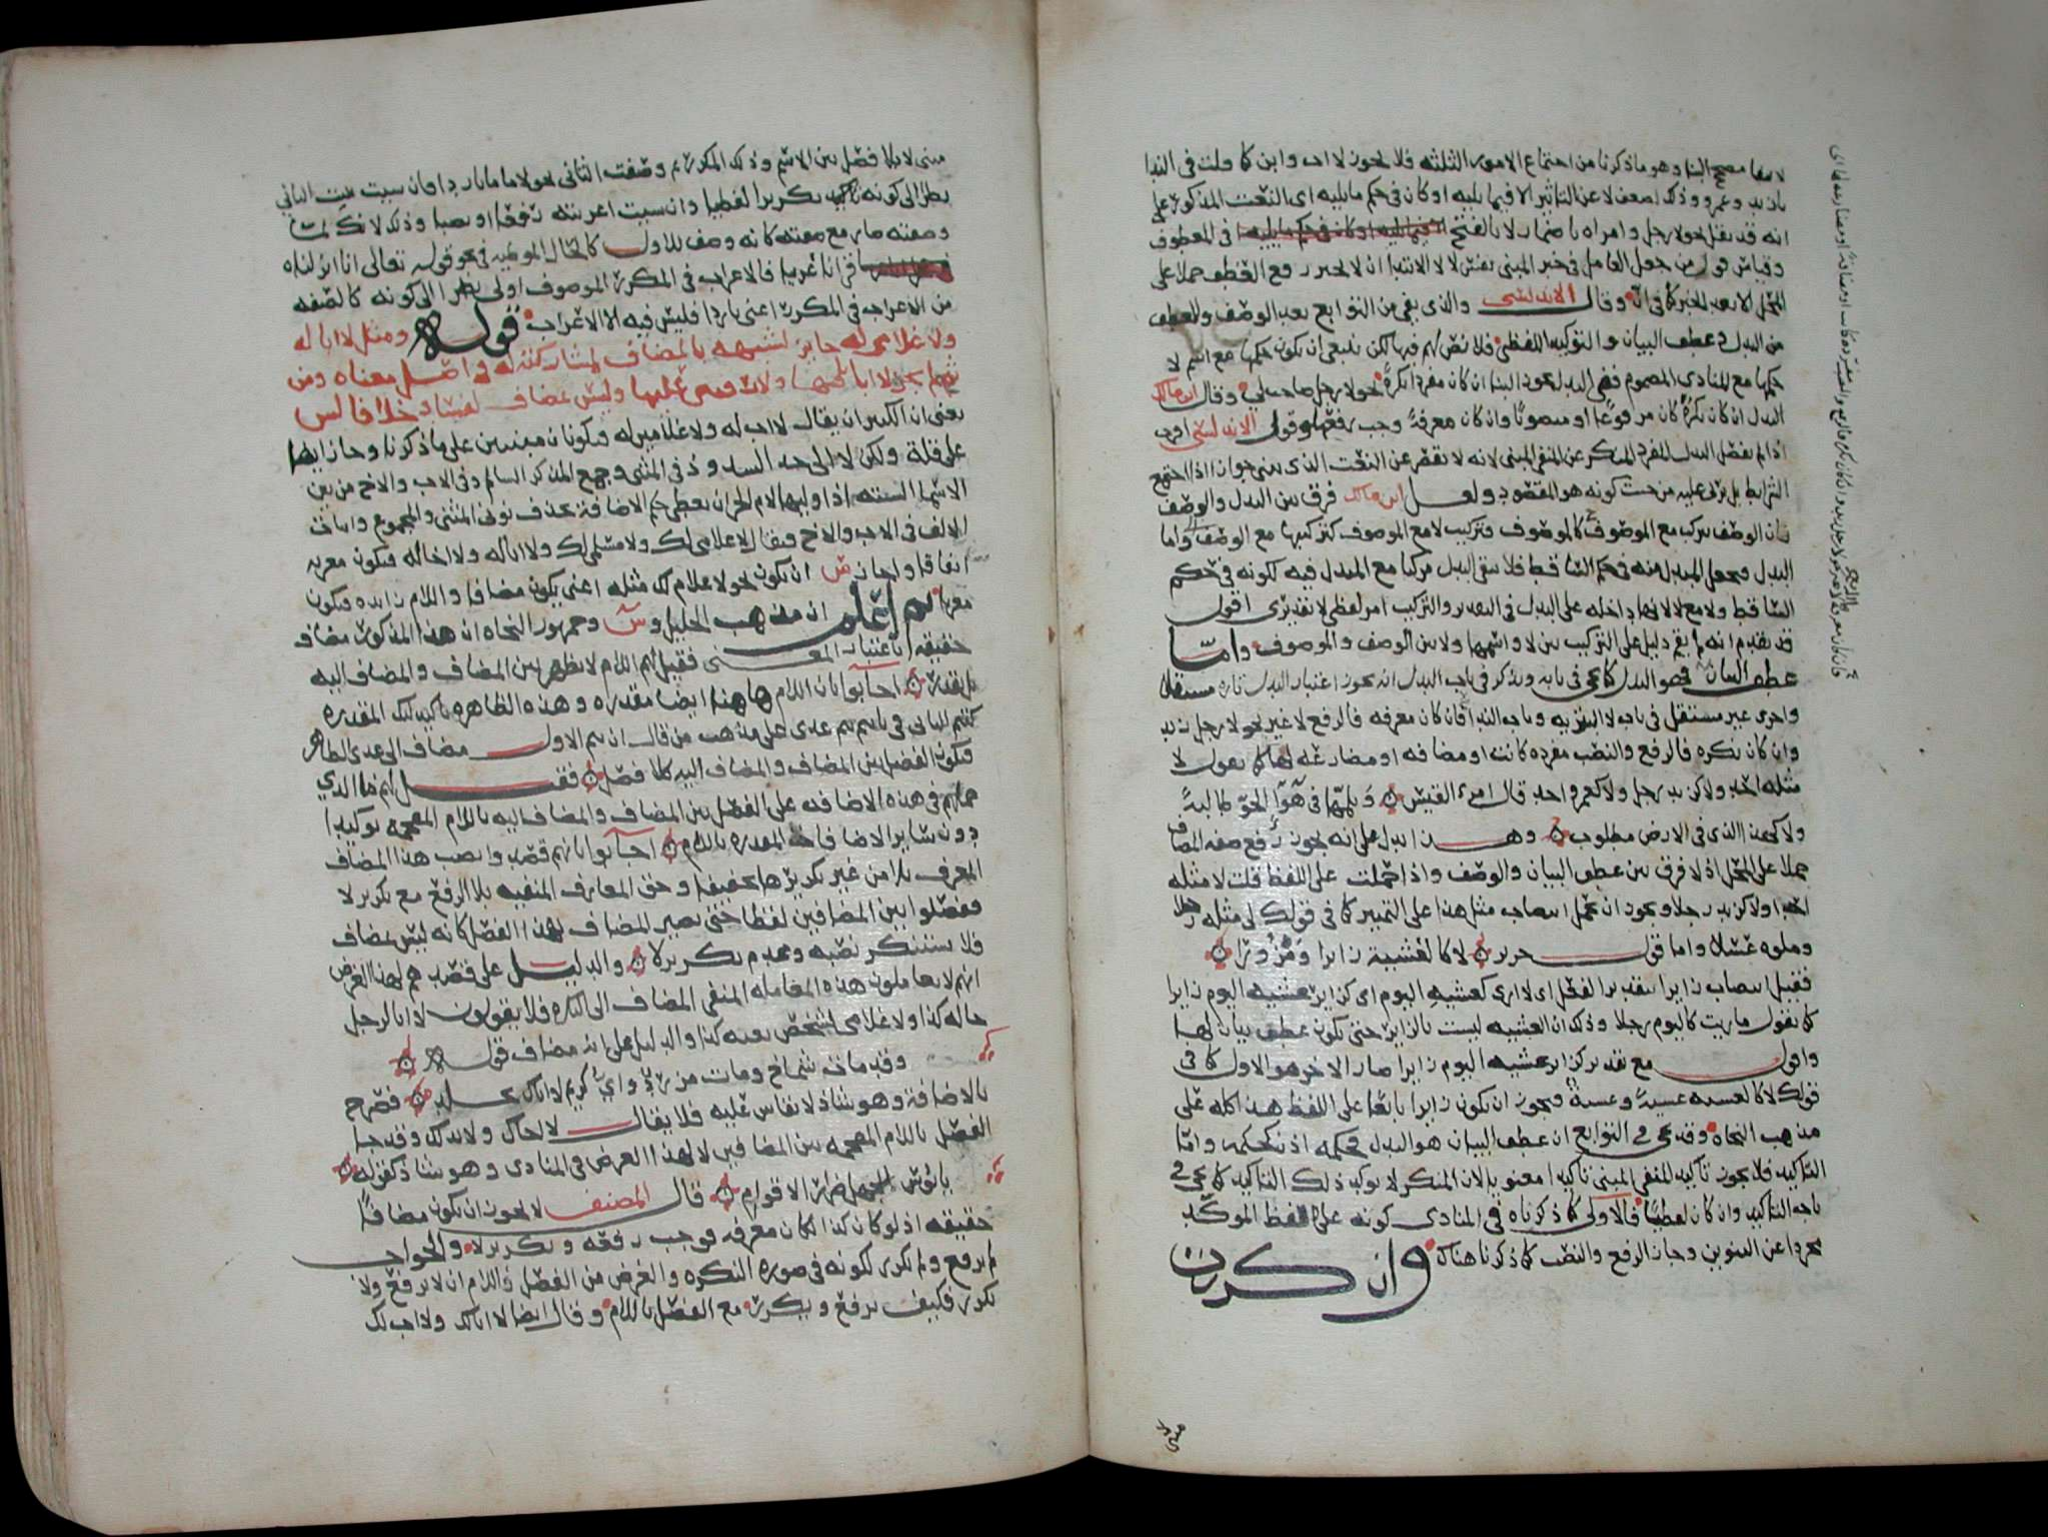 لانتفا مصحح البنا وهو ما ذكرنا من اجتماع الامور الثلثه فلا يجوز لا اب وابن كما قلت فى الندا
يا زيد وعمرو وذلك لضعف لا عن التاثير الا فيما يليه او كان فى حكم ما يليه اى النعت المذكور على
انه قد نقل نحو لا رجل وامراه باضمار لا بالفتح فى المعطوف
وقياس قول من جعل العامل فى خبر المبنى نفس لا لا الابتدا ان لا يجيز رفع المعطوف حملا على
المحل الا بعد الخبر كما فى ان وقال الاندلسى والذى بقى من التوابع بعد الوصف والعطف
من البدل وعطف البيان والتوكيد اللفظى فلا نص لهم فيها لكن ينبغى ان يكون حكمها مع اسم لا
حكمها مع المنادى المضموم ففى البدل يجوز البنا ان كان مفردا نكرة نحو لا رجل صاحب لى وقال ابن مالك
البدل ان كان نكرة كان مرفوعا او منصوبا وان كان معرفة وجب رفعه وقول الاندلسى اقرب
اذ لم يفصل البدل المفرد المنكر عن المنفى المبنى لانه لا يقصر عن النعت الذى يبنى جوازا اذا اجتمع
الشرايط بل يربى عليه من حيث كونه هو المقصود ولعل ابن مالك فرق بين البدل والوصف
بان الوصف يركب مع الموصوف كالموصوف فتركيب لا مع الموصوف كتركيبها مع الوصف واما
البدل فيجعل المبدل منه فى حكم الساقط فلا يبقى البدل مركبا مع المبدل فيه لكونه فى حكم
الساقط ولا مع لا لانها داخله على البدل فى التقدير والتركيب امر لفظى لا تقديرى اقول
قد تقدم انه لم يقم دليل على التركيب بين لا واسمها ولا بين الوصف والموصوف واما
عطف البيان فهو البدل كما يجى فى بابه ونذكر فى باب البدل انه يجوز اعتبار البدل تاره مستقلا
واخرى غير مستقل فى باب لا التبريه وباب النداء فان كان معرفه فالرفع لا غير نحو لا رجل زيد
وان كان نكره فالرفع والنصب مفرده كانت او مضافه او مضارعة لها كما تقول لا
مثله احد ولا كزيد رجل ولا كعمرو احد قال امرء القيس ويلمها فى هوا الجو طالبة
ولا كهذا الذى فى الارض مطلوب وهذا يدل على انه يجوز رفع صفه المضاف
حملا على المحل اذ لا فرق بين عطف البيان والوصف واذا حملت على اللفظ قلت لا مثله
احدا ولا كزيد رجلا ويجوز ان تحمل انتصاب مثل هذا على التمييز كما فى قولك لى مثله رجلا
وملوه عسلا واما قول جرير لا كالعشية زايرا ومزورا
فقيل انتصاب زايرا بتقدير الفعل اى لا ارى كعشيه اليوم اى كزاير عشيه اليوم زايرا
كما تقول ما رايت كاليوم رجلا وذلك ان العشيه ليست بالزاير حتى تكون عطف بيان لها
واقول مع تقدير كزاير عشيه اليوم زايرا صار الاخر هو الاول كما فى
قولك لا كالعشيه عشية وعشية فيجوز ان يكون زايرا تابعا على اللفظ هذا كله على
مذهب النحاة وقد يجى فى التوابع ان عطف البيان هو البدل فحكمه اذن حكمه واما
التاكيد فلا يجوز تاكيد المنفى المبنى تاكيدا معنويا لان المنكر لا يوكد ذلك التاكيد كما يجى فى
باب التاكيد وان كان لفظيا فالاولى كما ذكرناه فى المنادى كونه على لفظ الموكد
مجردا عن التنوين وجاز الرفع والنصب كما ذكرنا هناك وان كررت
مبنى لا
مبنى لا بلا فصل بين الاسم وذلك المكرر ثم وصفت الثانى نحو لا ما ما باردا وان شيت بنيت الثانى
نظرا الى كونه تكريرا لفظيا وان شيت اعربته رفعا او نصبا وذلك لانك لما
وصفته صار مع صفته كانه وصف للاول كالحال الموطيه فى نحو قوله تعالى انا انزلناه
قرانا عربيا فالاعراب فى المكرر الموصوف اولى نظرا الى كونه كالصفه
من الاعراب فى المكرر اعنى باردا فليس فيه الا الاعراب قوله ومثل لا ابا له
ولا غلامى له جايز لتشبيهه بالمضاف لمشاركته له فى اصل معناه ومن
ثم لم يجز لا ابا فيها ولا رقيبى عليها وليس بمضاف لفساد خلافا لس
يعنى ان الكثير ان يقال لا اب له ولا غلامين له فيكونان مبنيين على ما ذكرنا وجاز ايضا
على قلة ولكن لا الى حد الشذوذ فى المثنى وجمع المذكر السالم وفى الاب والاخ من بين
الاسما السته اذا وليها لام الجر ان يعطى حكم الاضافة بحذف نونى المثنى والمجموع واثبات
الالف فى الاب والاخ فيقال لا غلامى لك ولا مسلمى لك ولا ابا له ولا اخا له فتكون معربه
اتفاقا واجاز س ان يكون نحو لا غلام لك مثله اعنى يكون مضافا واللام زايده فيكون
معربا ثم اعلم ان مذهب الخليل وس وجمهور النحاه ان هذا المذكور مضاف
حقيقه باعتبار المعنى فقيل لهم اللام لا تظهر بين المضاف والمضاف اليه
بل تقدر اجابوا بان اللام هاهنا ايضا مقدره وهذه الظاهره تاكيد لتلك المقدره
كتيم الثانى فى يا تيم تيم عدى على مذهب من قال ان تيم الاول مضاف الى عدى الظاهر
فيكون الفصل بين المضاف والمضاف اليه كلا فصل فقيل لهم فما الذى
حملهم فى هذه الاضافه على الفصل بين المضاف والمضاف اليه باللام المقحمه توكيدا
دون ساير الاضافات المقدره باللام اجابوا بانهم قصدوا نصب هذا المضاف
المعرف بلا من غير تكريرها تخفيفا وحق المعارف المنفيه بلا الرفع مع تكرير لا
ففصلوا بين المضافين لفظا حتى يصير المضاف بهذا الفصل كانه ليس بمضاف
فلا يستنكر نصبه وعدم تكرير لا والدليل على قصدهم لهذا الغرض
انهم لا يعاملون هذه المعامله المنفى المضاف الى النكره فلا يقولون لا ابا لرجل
حاله كذا ولا غلامى لشخص نعته كذا والدليل على انه مضاف قوله
وقد مات شماخ ومات مزرد واى كريم لا اباك يخلد فصرح
بالاضافة وهو شاذ لا يقاس عليه فلا يقال لا اخاك ولا يديك وقد جا
الفصل باللام المقحمه بين المضافين لا لهذا الغرض فى المنادى وهو شاذ كقوله
يا بوس للجهل ضرارا لاقوام قال المصنف لا يجوز ان يكون مضافا
حقيقه اذ لو كان كذا لكان معرفه فوجب رفعه وتكرير لا والجواب
لم يرفع ولم تكرر لكونه فى صوره النكره والغرض من الفصل باللام ان لا يرفع ولا
تكرر فكيف يرفع ويكرر مع الفصل باللام وقال ايضا لا اباك ولا اب لك